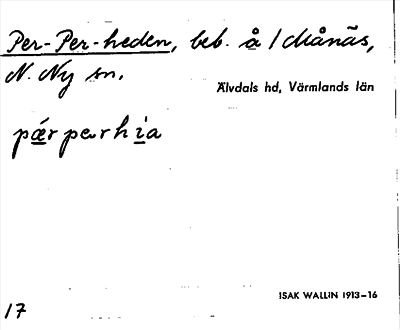 Per-Per-heden, beb. å Månäs,
N. Ny sn.
Älvdals hd, Värmlands län
pǽrparhia
ISAK WALLIN 1913–16
17